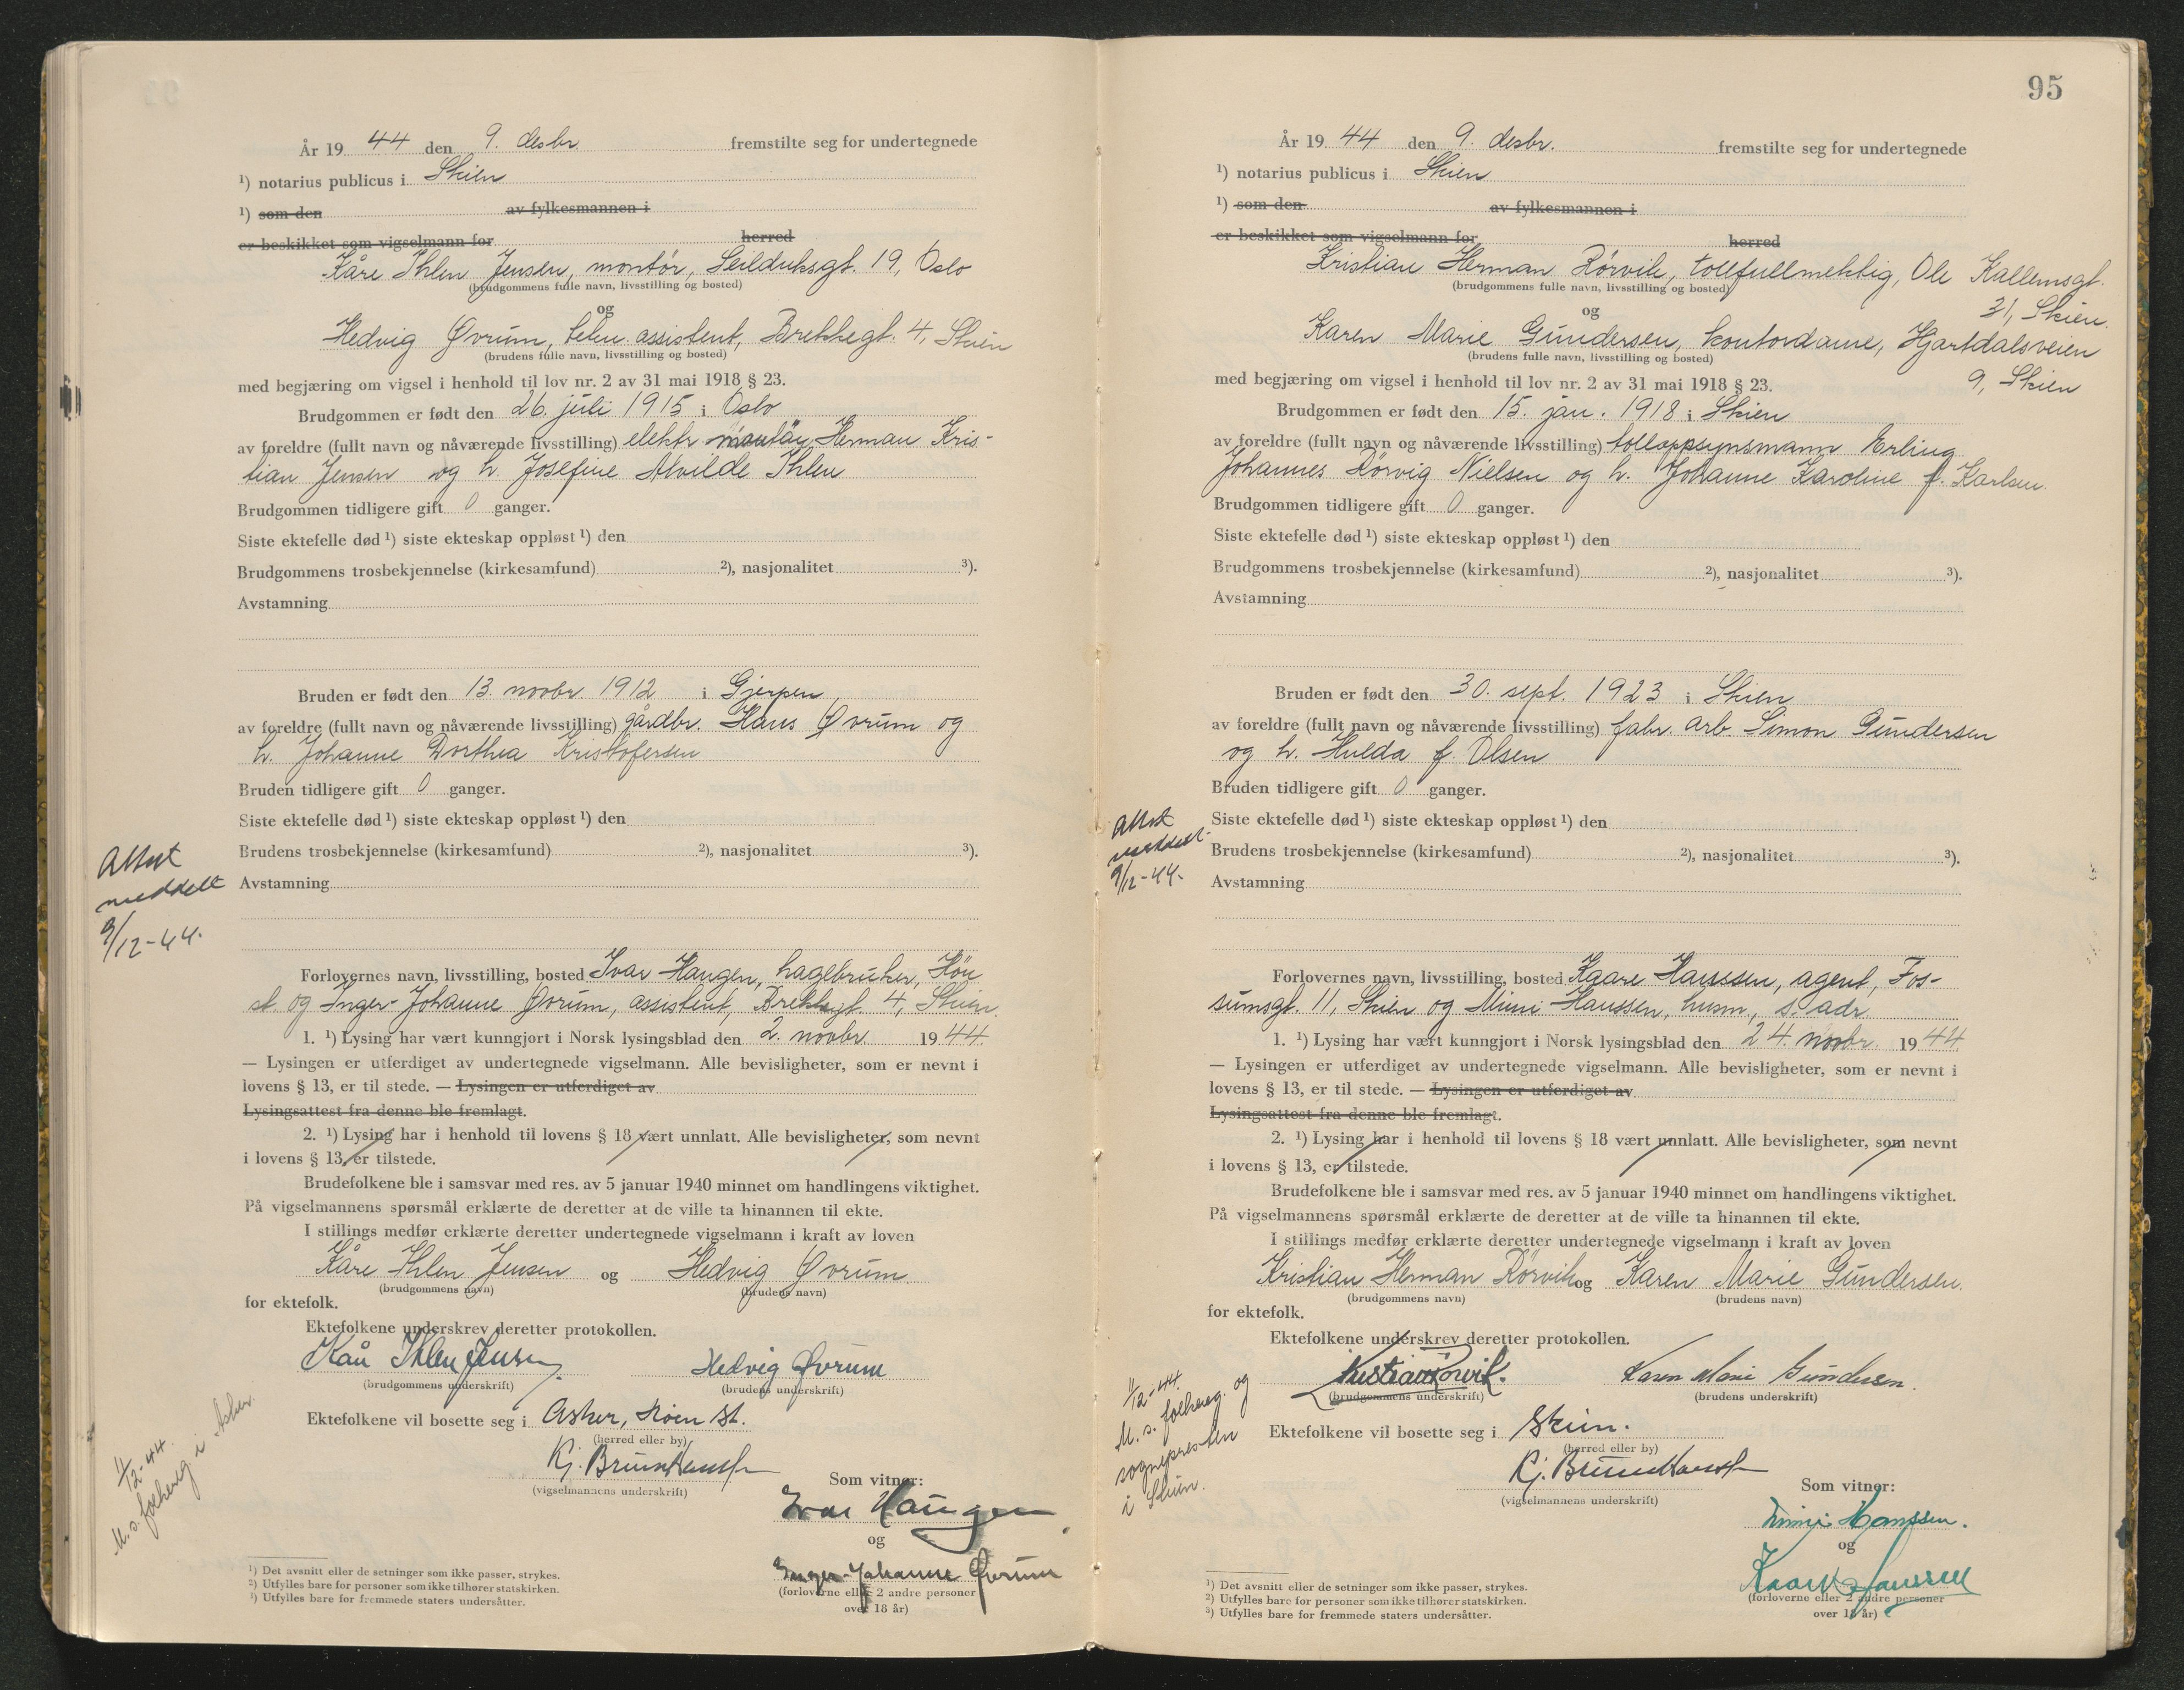 År 19 44 den 9. desbr. fremstilte seg for undertegnede
¹) notarius publicus i Skien
¹) som den av fylkesmannen i
er beskikket som vigselmann for herred
Kåre Ihlen Jensen, montör, Seilduksgt. 19, Oslo
(brudgommens fulle navn, livsstilling og bosted)
og
Hedvig Øvrum, telen. assistent, Brekkegt. 4, Skien
(brudens fulle navn, livsstilling og bosted)
med begjæring om vigsel i henhold til lov nr. 2 av 31 mai 1918 § 23.
Brudgommen er født den 26. juli 1915 i Oslo
av foreldre (fullt navn og nåværende livsstilling) elektr. montör Herman Kris-
tian Jensen og h. Josefine Alvilde Ihlen
Brudgommen tidligere gift 0 ganger.
Siste ektefelle død ¹) siste ekteskap oppløst ¹) den
Brudgommens trosbekjennelse (kirkesamfund) ²), nasjonalitet ³).
Avstamning
Bruden er født den 13. novbr. 1912 i Gjerpen,
av foreldre (fullt navn og nåværende livsstilling) gårdbr. Hans Øvrum og
h. Johanne Dorthea Kristofersen
Bruden tidligere gift 0 ganger.
Siste ektefelle død ¹) siste ekteskap oppløst ¹) den
Brudens trosbekjennelse (kirkesamfund) ²), nasjonalitet ³).
Avstamning
Attest
meddelt
9/12-44.
Forlovernes navn, livsstilling, bosted Ivar Haugen, hagebruker, Høn
st. og Inger-Johanne Øvrum, assistent, Brekkegt. 4, Skien.
1. ¹) Lysing har vært kunngjort i Norsk lysingsblad den 2. novbr. 19 44
— Lysingen er utferdiget av undertegnede vigselmann. Alle bevisligheter, som er nevnt i
lovens § 13, er til stede. — Lysingen er utferdiget av
Lysingsattest fra denne ble fremlagt.
2. ¹) Lysing har i henhold til lovens § 18 vært unnlatt. Alle bevisligheter, som nevnt
i lovens § 13, er tilstede.
Brudefolkene ble i samsvar med res. av 5 januar 1940 minnet om handlingens viktighet.
På vigselmannens spørsmål erklærte de deretter at de ville ta hinannen til ekte.
I stillings medfør erklærte deretter undertegnede vigselmann i kraft av loven
Kåre Ihlen Jensen og Hedvig Øvrum
(brudgommens navn) (brudens navn)
for ektefolk.
Ektefolkene underskrev deretter protokollen.
Kåre Ihlen Jensen Hedvig Øvrum
(brudgommens underskrift) (brudens underskrift)
Ektefolkene vil bosette seg i Asker, Høn st.
(herred eller by)
(vigselmannens underskrift)
Som vitner:
Ivar Haugen
og
Inger-Johanne Øvrum
(forloverne eller 2 andre personer
over 18 år)
11/12-44.
M. s. folkereg i Asker.
¹) Det avsnitt eller de setninger som ikke passer, strykes.
²) Utfylles bare for personer som ikke tilhører statskirken.
³) Utfylles bare for fremmede staters undersåtter.
95
År 19 44 den 9. desbr. fremstilte seg for undertegnede
¹) notarius publicus i Skien
¹) som den av fylkesmannen i
er beskikket som vigselmann for herred
Kristian Herman Rörvik, tollfullmektig, Ole Kallemsgt.
(brudgommens fulle navn, livsstilling og bosted)
31, Skien.
og
Karen Marie Gundersen, kontordame, Hjartdalsveien
(brudens fulle navn, livsstilling og bosted)
9, Skien
med begjæring om vigsel i henhold til lov nr. 2 av 31 mai 1918 § 23.
Brudgommen er født den 15. jan. 1918 i Skien
av foreldre (fullt navn og nåværende livsstilling) tolloppsynsmann Erling
Johannes Rörvig Nielsen og h. Johanne Karoline f. Karlsen.
Brudgommen tidligere gift 0 ganger.
Siste ektefelle død ¹) siste ekteskap oppløst ¹) den
Brudgommens trosbekjennelse (kirkesamfund) ²), nasjonalitet ³).
Avstamning
Bruden er født den 30. sept. 1923 i Skien
av foreldre (fullt navn og nåværende livsstilling) fabr. arb. Simon Gundersen
og h. Hulda f. Olsen
Bruden tidligere gift 0 ganger.
Siste ektefelle død ¹) siste ekteskap oppløst ¹) den
Brudens trosbekjennelse (kirkesamfund) ²), nasjonalitet ³).
Avstamning
Attest
meddelt
9/12-44.
Forlovernes navn, livsstilling, bosted Kaare Hanssen, agent, Fos-
sumsgt. 11, Skien og Mimi Hanssen, husm., s. adr.
1. ¹) Lysing har vært kunngjort i Norsk lysingsblad den 24. novbr. 19 44
— Lysingen er utferdiget av undertegnede vigselmann. Alle bevisligheter, som er nevnt i
lovens § 13, er til stede. — Lysingen er utferdiget av
Lysingsattest fra denne ble fremlagt.
2. ¹) Lysing har i henhold til lovens § 18 vært unnlatt. Alle bevisligheter, som nevnt
i lovens § 13, er tilstede.
Brudefolkene ble i samsvar med res. av 5 januar 1940 minnet om handlingens viktighet.
På vigselmannens spørsmål erklærte de deretter at de ville ta hinannen til ekte.
I stillings medfør erklærte deretter undertegnede vigselmann i kraft av loven
Kristian Herman Rörvik og Karen Marie Gundersen.
(brudgommens navn) (brudens navn)
for ektefolk.
Ektefolkene underskrev deretter protokollen.
Kristian Rörvik. Karen Marie Gundersen.
(brudgommens underskrift) (brudens underskrift)
Ektefolkene vil bosette seg i Skien.
(herred eller by)
(vigselmannens underskrift)
Som vitner:
Mimi Hanssen.
og
Kaare Hanssen
(forloverne eller 2 andre personer
over 18 år)
11/12-44.
M. s. folkereg. og
sognepresten
i Skien.
¹) Det avsnitt eller de setninger som ikke passer, strykes.
²) Utfylles bare for personer som ikke tilhører statskirken.
³) Utfylles bare for fremmede staters undersåtter.